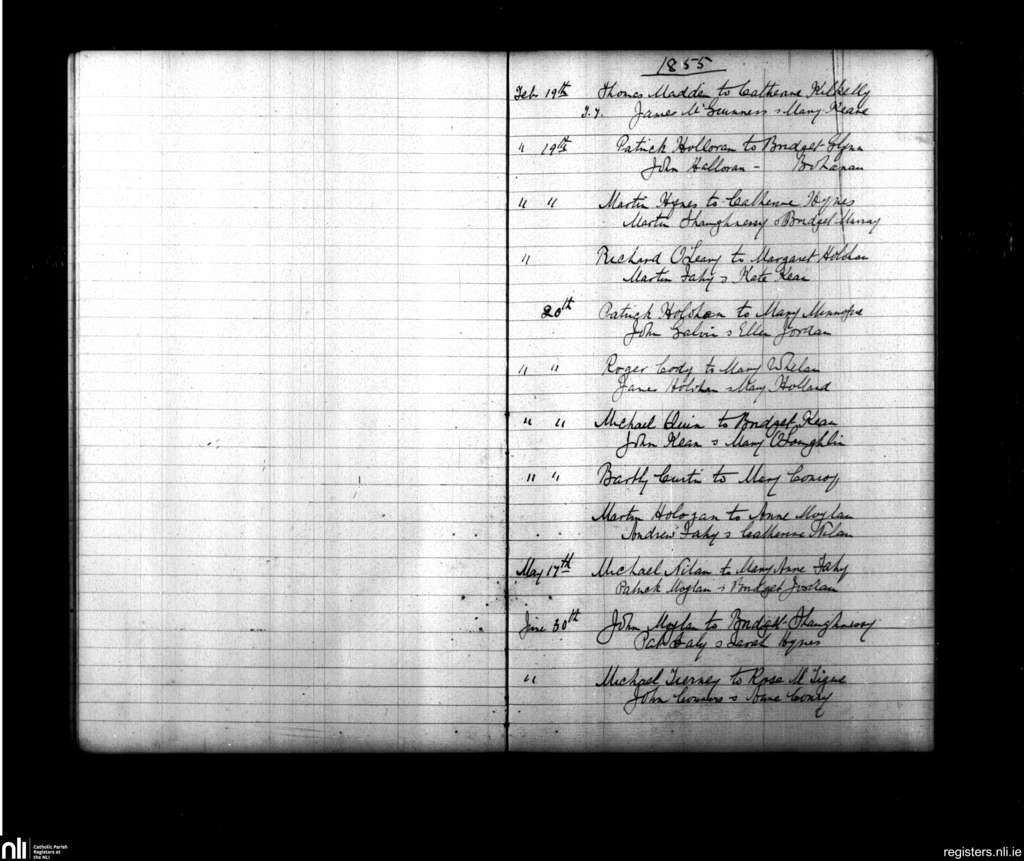 1855
Feb 19th Thomas Madden to Catherine Kilkelly
James McGuinness & Mary Keane
" 19th Patrick Holloran to Bridget Glynn
John Halloran - Bohanan
" " Martin Hynes to Catherine Hynes
Martin Shaughnessy & Bridget Murray
" Richard O'Leary to Margaret Holohan
Martin Fahy & Kate Kean
20th Patrick Holohan to Mary
John Galvin & Ellen Jordan
" " Roger Cody to Mary Whelan
James Holohan & Mary Holland
" " Michael Quin to Bridget Kean
John Kean & Mary O'Loughlin
" " Bartly Curtin to Mary Conroy
Martin Hologan to Anne Moylan
Andrew Fahy & Catherine Nilan
May 17th Michael Nilan to Mary Anne Fahy
Patrick Moylan & Bridget Jordan
June 30th John Moylan to Bridget Shaughnessy
Pat Daly & Sarah Hynes
" Michael Tierney to Rose McTigue
John Connors & Anne Conry
nli
Catholic Parish
Registers at
the NLI
registers.nli.ie